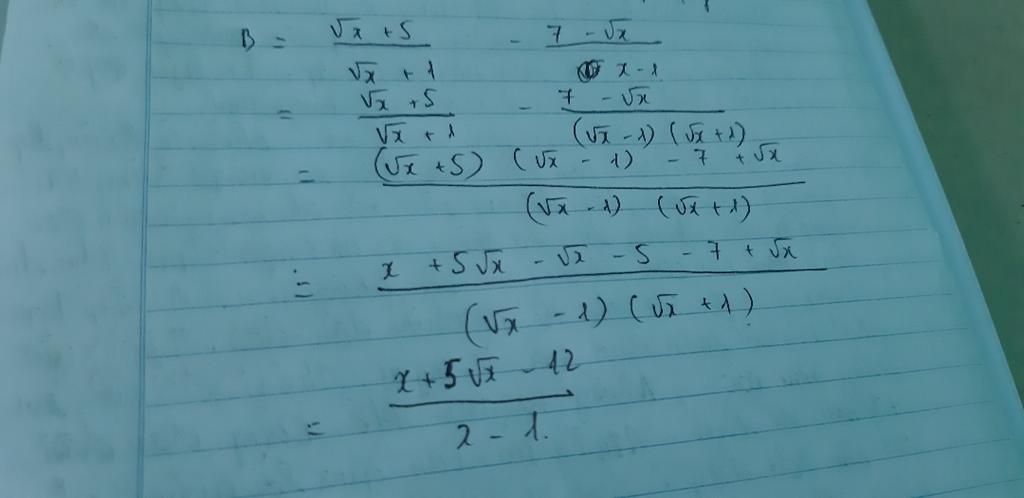 B = (√x + 5)/(√x + 1) - (7 - √x)/(x - 1)
= (√x + 5)/(√x + 1) - (7 - √x)/((√x - 1) (√x + 1))
= ((√x + 5) (√x - 1) - 7 + √x)/((√x - 1) (√x + 1))
= (x + 5√x - √x - 5 - 7 + √x)/((√x - 1) (√x + 1))
= (x + 5√x - 12)/(x - 1)